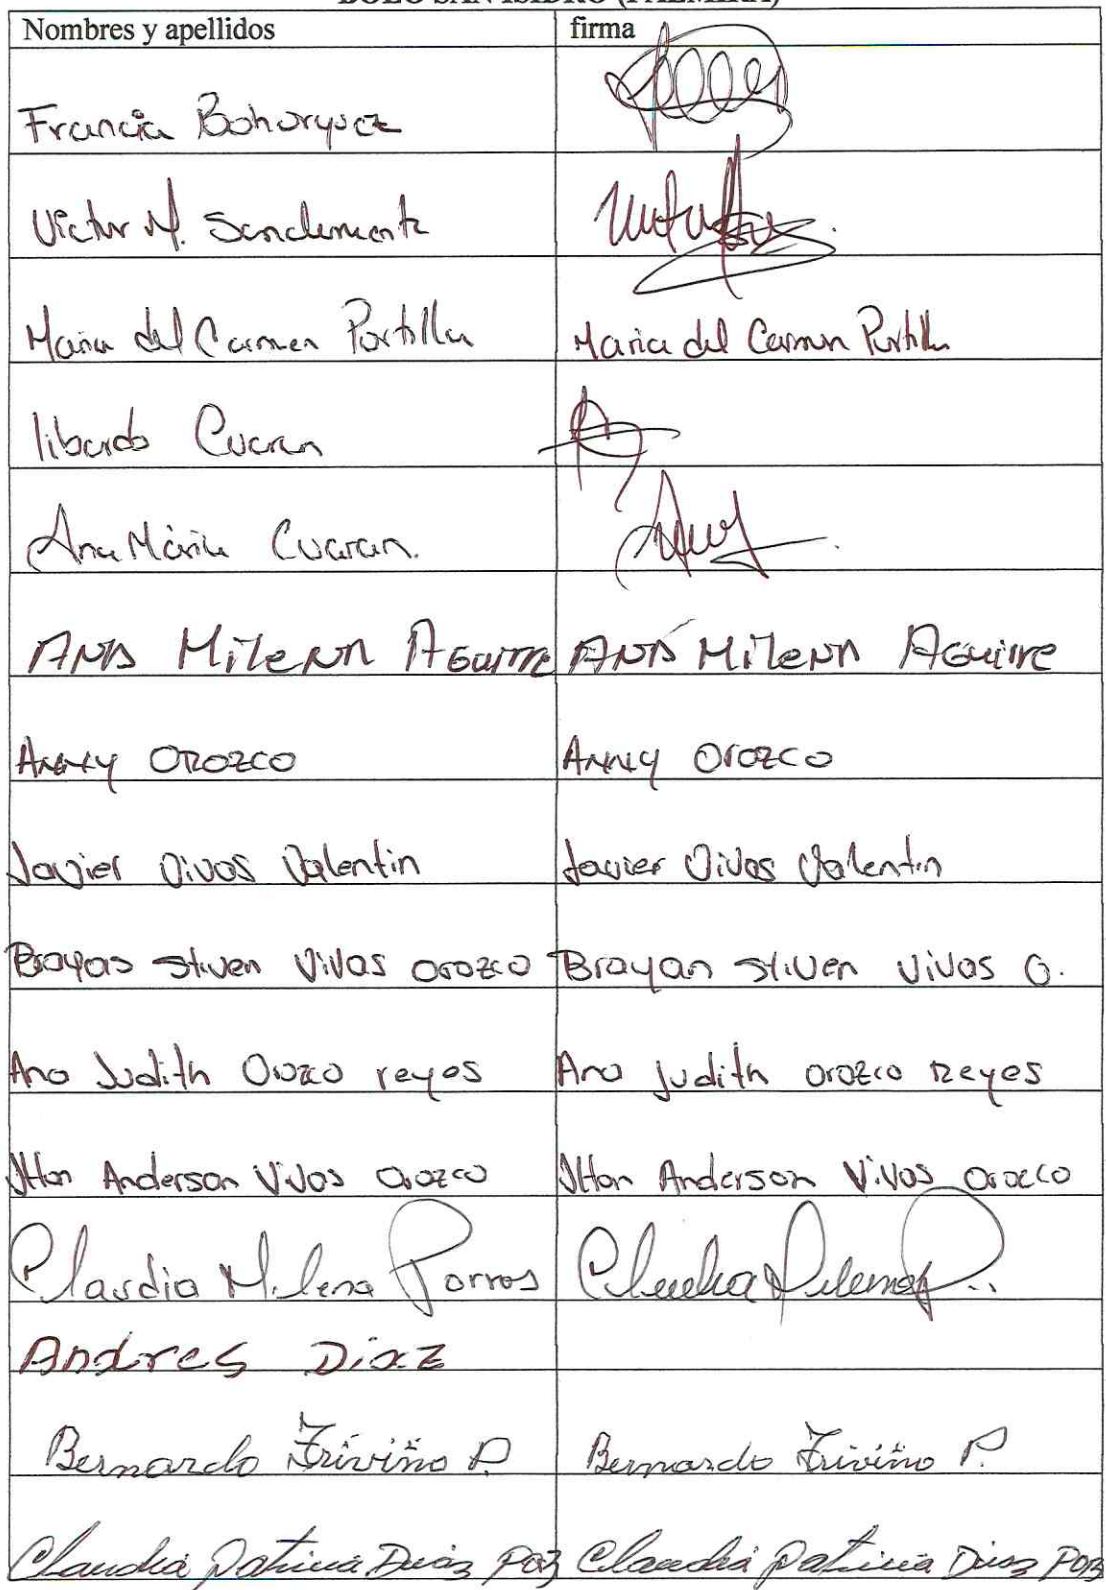 BOLO SAN ISIDRO (PALMIRA)
Nombres y apellidos firma
Francia Bohorquez
Victor M. Sanclemente
Maria del Carmen Portilla Maria del Carmen Portilla
libardo Cuaran
Ana Maria Cuaran.
ANA MiLeNA AGuirre ANA MiLeNA AGuirre
ANNY OROZCO ANNY OrOZCO
Javier Vivas Valentin Javier Vivas Valentin
Brayan stiven Vivas orozco Brayan stiven vivas O.
Ana Judith Orozco reyes Ana judith orozco Reyes
Anderson Vivas Orozco Anderson Vivas Orozco
Claudia Milena Porras Claudia Milena P.
Andres Diaz
Bernardo Triviño P. Bernardo Triviño P.
Claudia Patricia Diaz Claudia Patricia Diaz